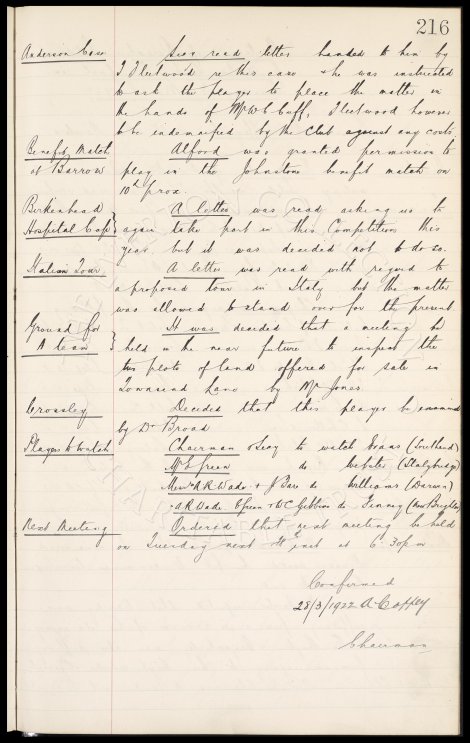 216
Anderson Case Secy read letter handed to him by
T Fleetwood re this case & he was instructed
to ask the player to place the matter in
the hands of Mr W. C. Cuff, Fleetwood however
to be indemnified by the Club against any costs.
Benefit Match Alford was granted permission to
at Barrow play in the Johnston benefit match on
10th prox.
Birkenhead A letter was read asking us to
Hospital Cup again take part in this Competition this
year but it was decided not to do so.
Italian Tour A letter was read with regard to
a proposed tour in Italy but the matter
was allowed to stand over for the present
Ground for It was decided that a meeting be
A team held in the near future to inspect the
two plots of land offered for sale in
Townsend Lane by Mr Jones
Crossley Decided that this player be examined
by Dr Broad
Players to Watch Chairman & Secy to watch Evans (Southend)
Mr E Green do Webster (Stalybridge)
Messrs A R Wade & J Bare do Williams (Darwen)
" A R Wade, E Green & W C Gibbins do Finney (New Brighton)
Next Meeting Ordered that next meeting be held
on Tuesday next inst at 6.30pm
Confirmed
28/3/1922 A Coffey
Chairman